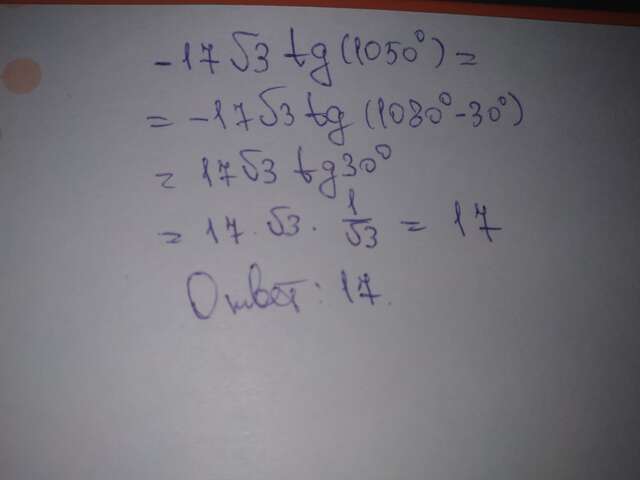 -17√3 tg(1050°) =
= -17√3 tg(1080°-30°)
= 17√3 tg30°
= 17·√3·1/√3 = 17
Ответ: 17.